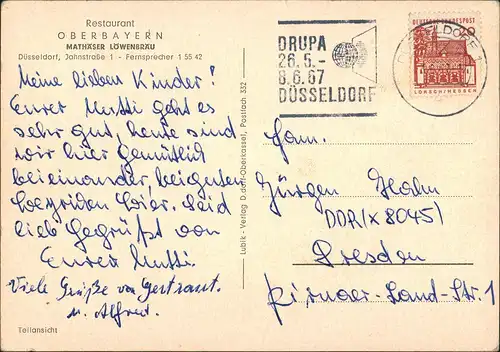 Restaurant
OBERBAYERN
MATHÄSER LÖWENBRÄU
Düsseldorf, Jahnstraße 1 - Fernsprecher 1 55 42
Meine lieben Kinder!
Eurer Mutti geht es
sehr gut, heute sind
wir hier gemütlich
beieinander, bei guten
Bayrischen Bier. Seid
lieb gegrüßt von
Eurer Mutti.
Viele Grüße von Gertraut.
u. Alfred.
Teilansicht
Lubik - Verlag D.dorf-Oberkassel, Postfach 332
DRUPA
26.5.-
8.6.67
DÜSSELDORF
DEUTSCHE BUNDESPOST
LORSCH/HESSEN
DÜSSELDORF 1
Fam.
Jürgen Hahn
DDR/X 8045/
Dresden
Pirnaer-Land-Str. 1